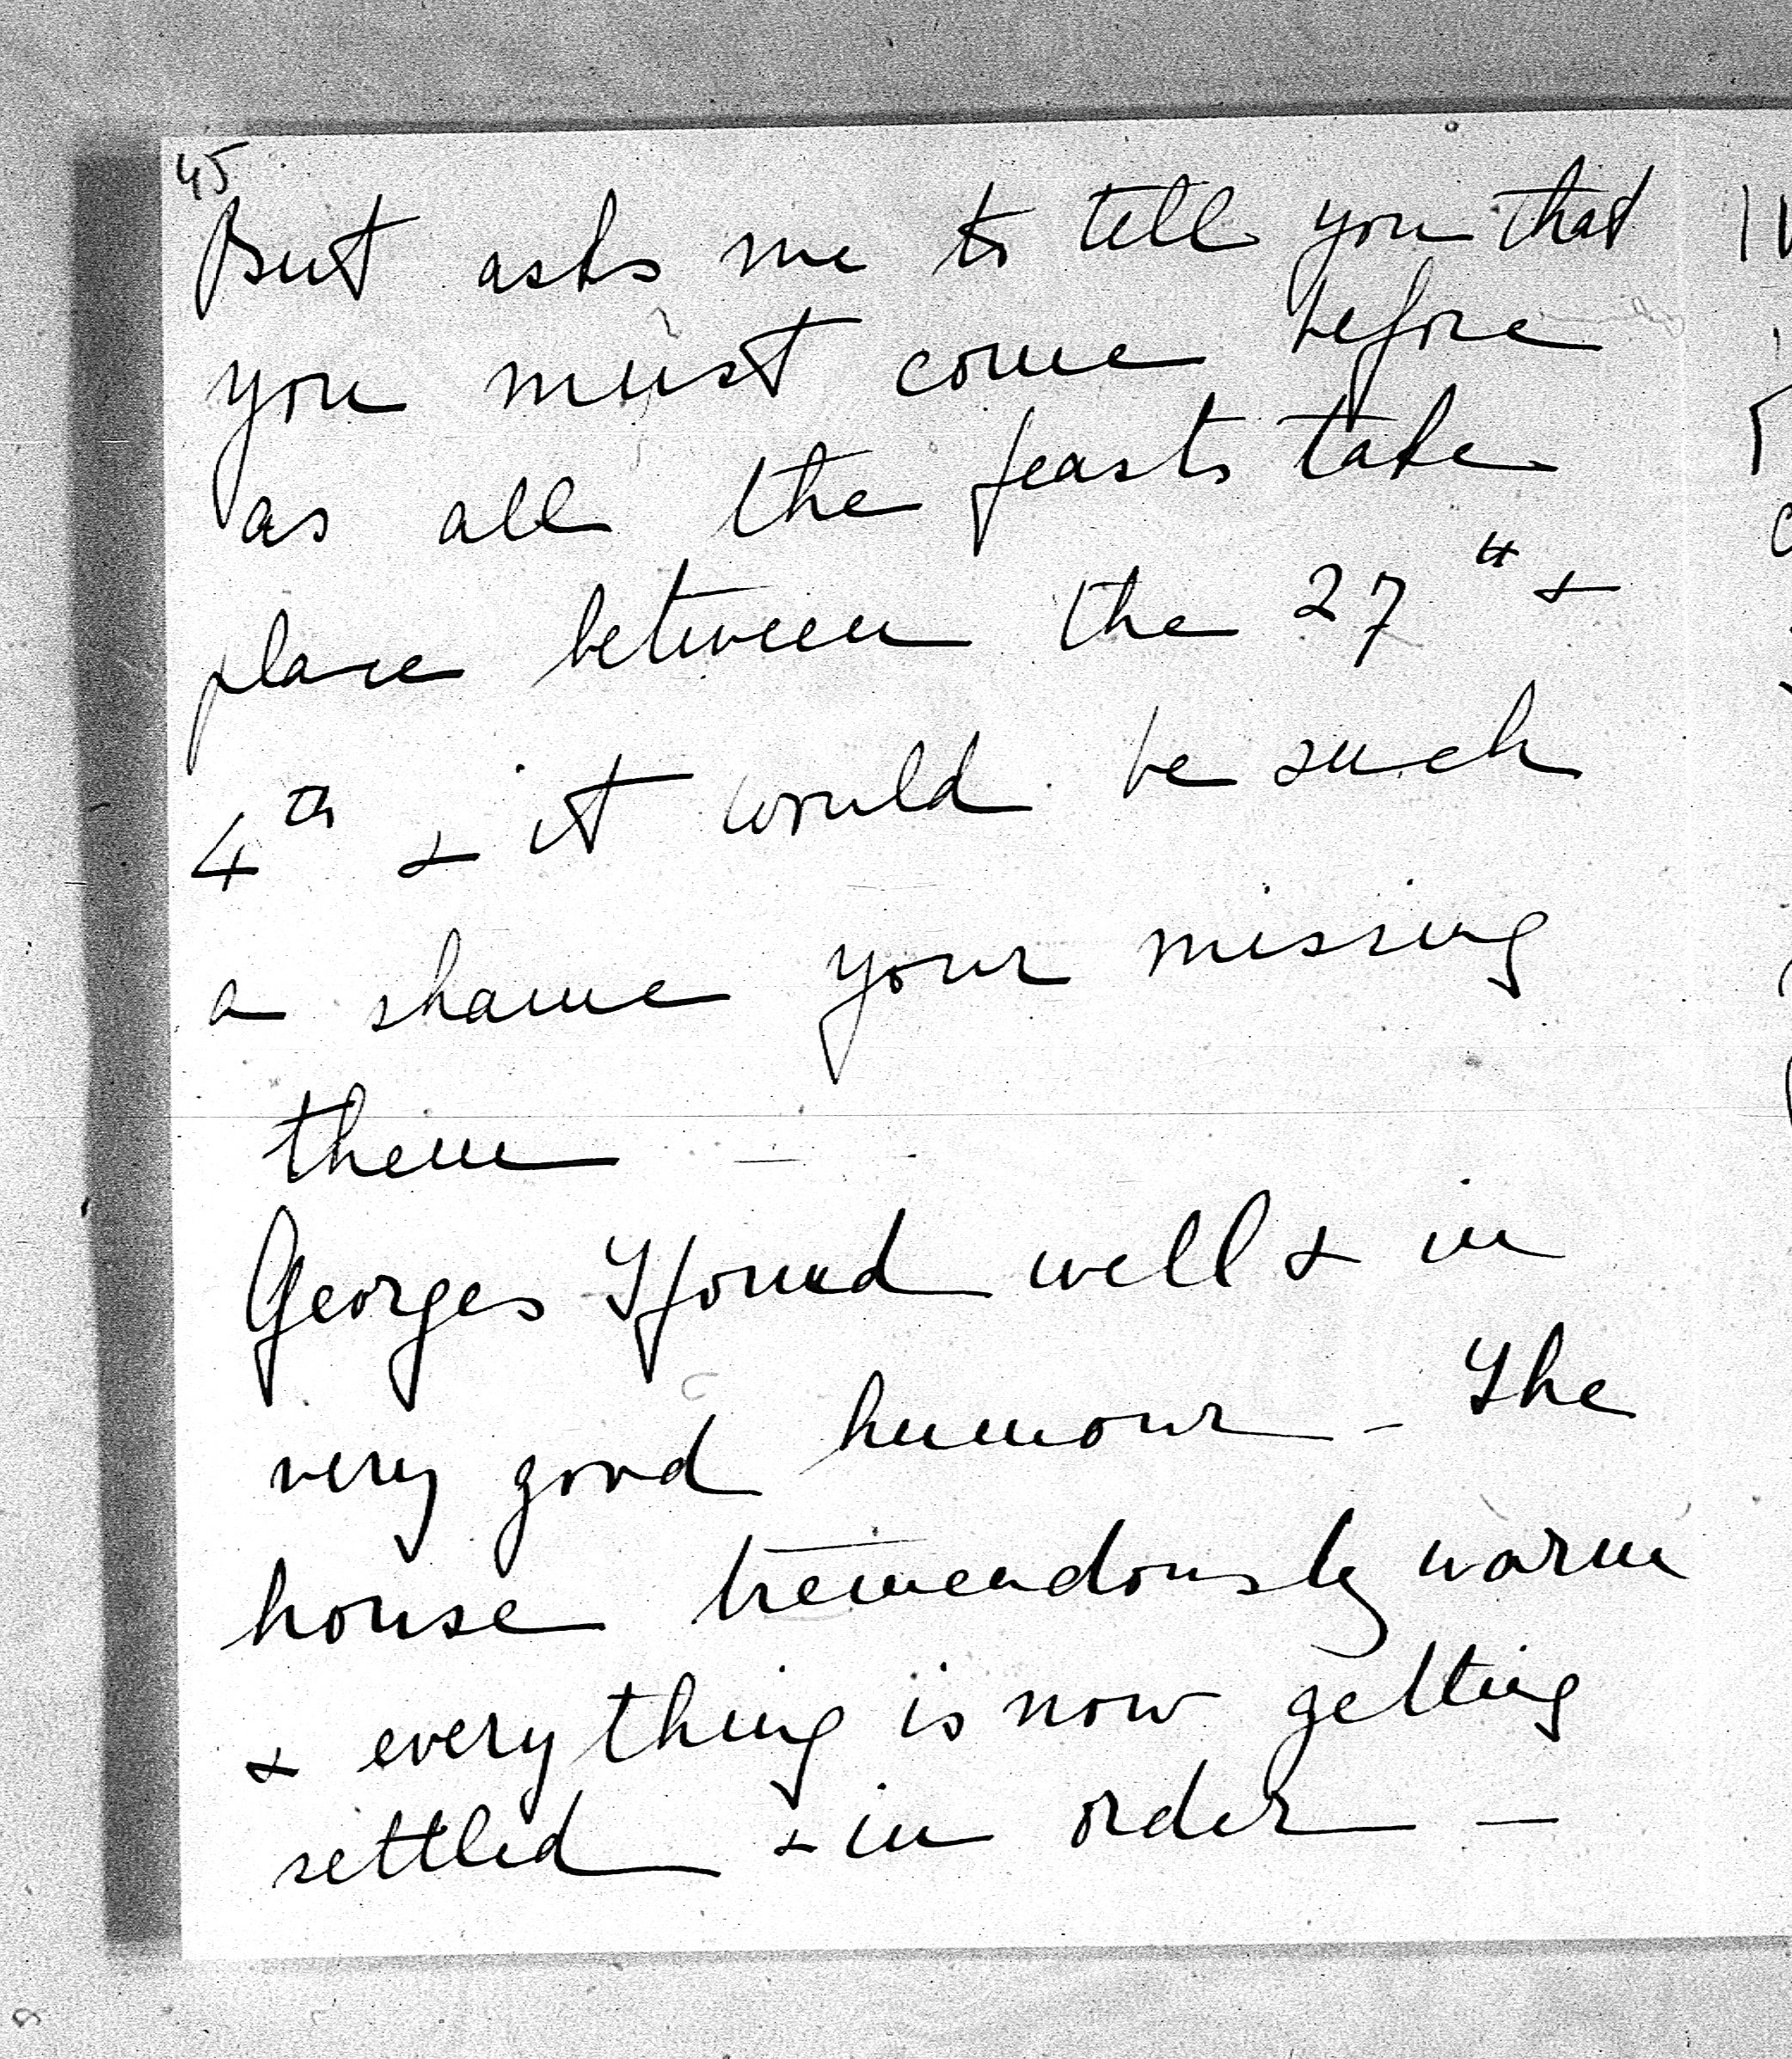 45
But asks me to tell you that
you must come before
as all the feasts take
place between the 27th &
4th & it would be such
a shame your missing
them
Georges I found well & in
very good humour – The
house tremendously warm
& everything is now getting
settled & in order –